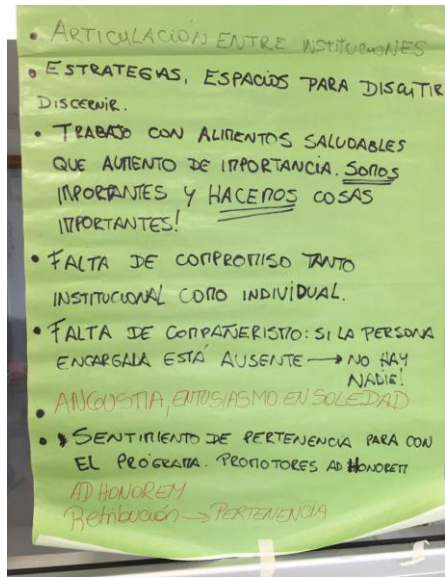 • ARTICULACIÓN ENTRE INSTITUCIONES
• ESTRATEGIAS, ESPACIOS PARA DISCUTIR
DISCERNIR.
• TRABAJO CON ALIMENTOS SALUDABLES
QUE AUMENTO DE IMPORTANCIA. SOMOS
IMPORTANTES Y HACEMOS COSAS
IMPORTANTES!
• FALTA DE COMPROMISO TANTO
INSTITUCIONAL COMO INDIVIDUAL.
• FALTA DE COMPAÑERISMO: SI LA PERSONA
ENCARGADA ESTÁ AUSENTE → NO HAY
NADIE!
• ANGUSTIA, ENTUSIASMO EN SOLEDAD
• SENTIMIENTO DE PERTENENCIA PARA CON
EL PROGRAMA. PROMOTORES AD HONOREM
AD HONOREM
Retribución → PERTENENCIA